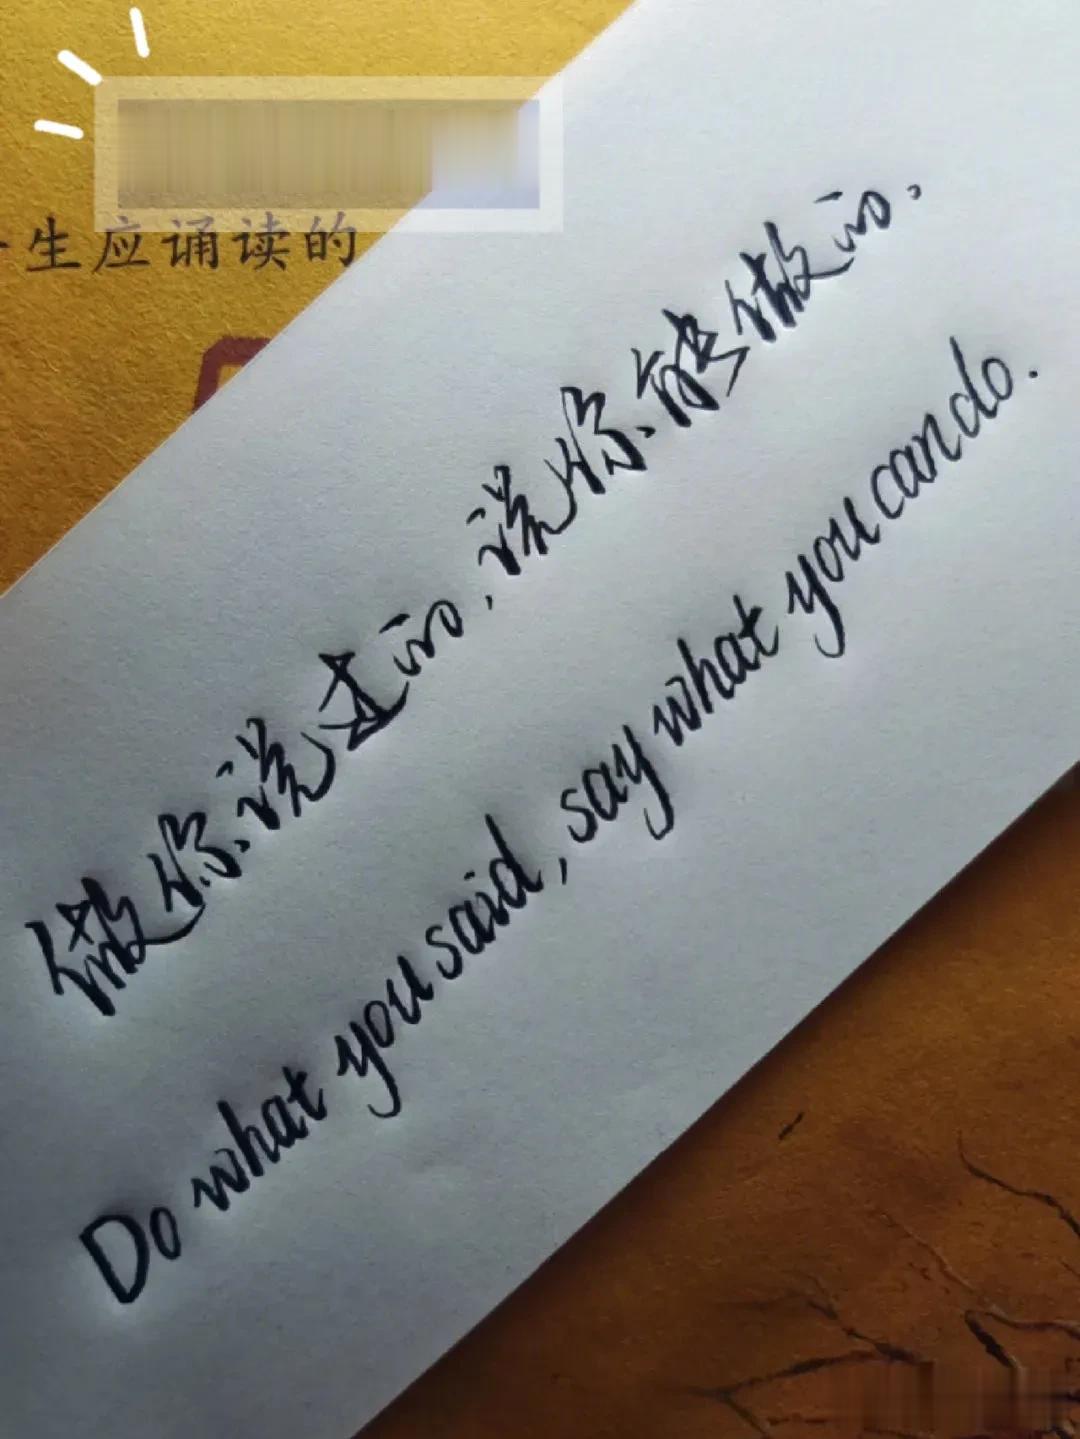 生应诵读的
做你说过的,说你能做的.
Do what you said, say what you can do.